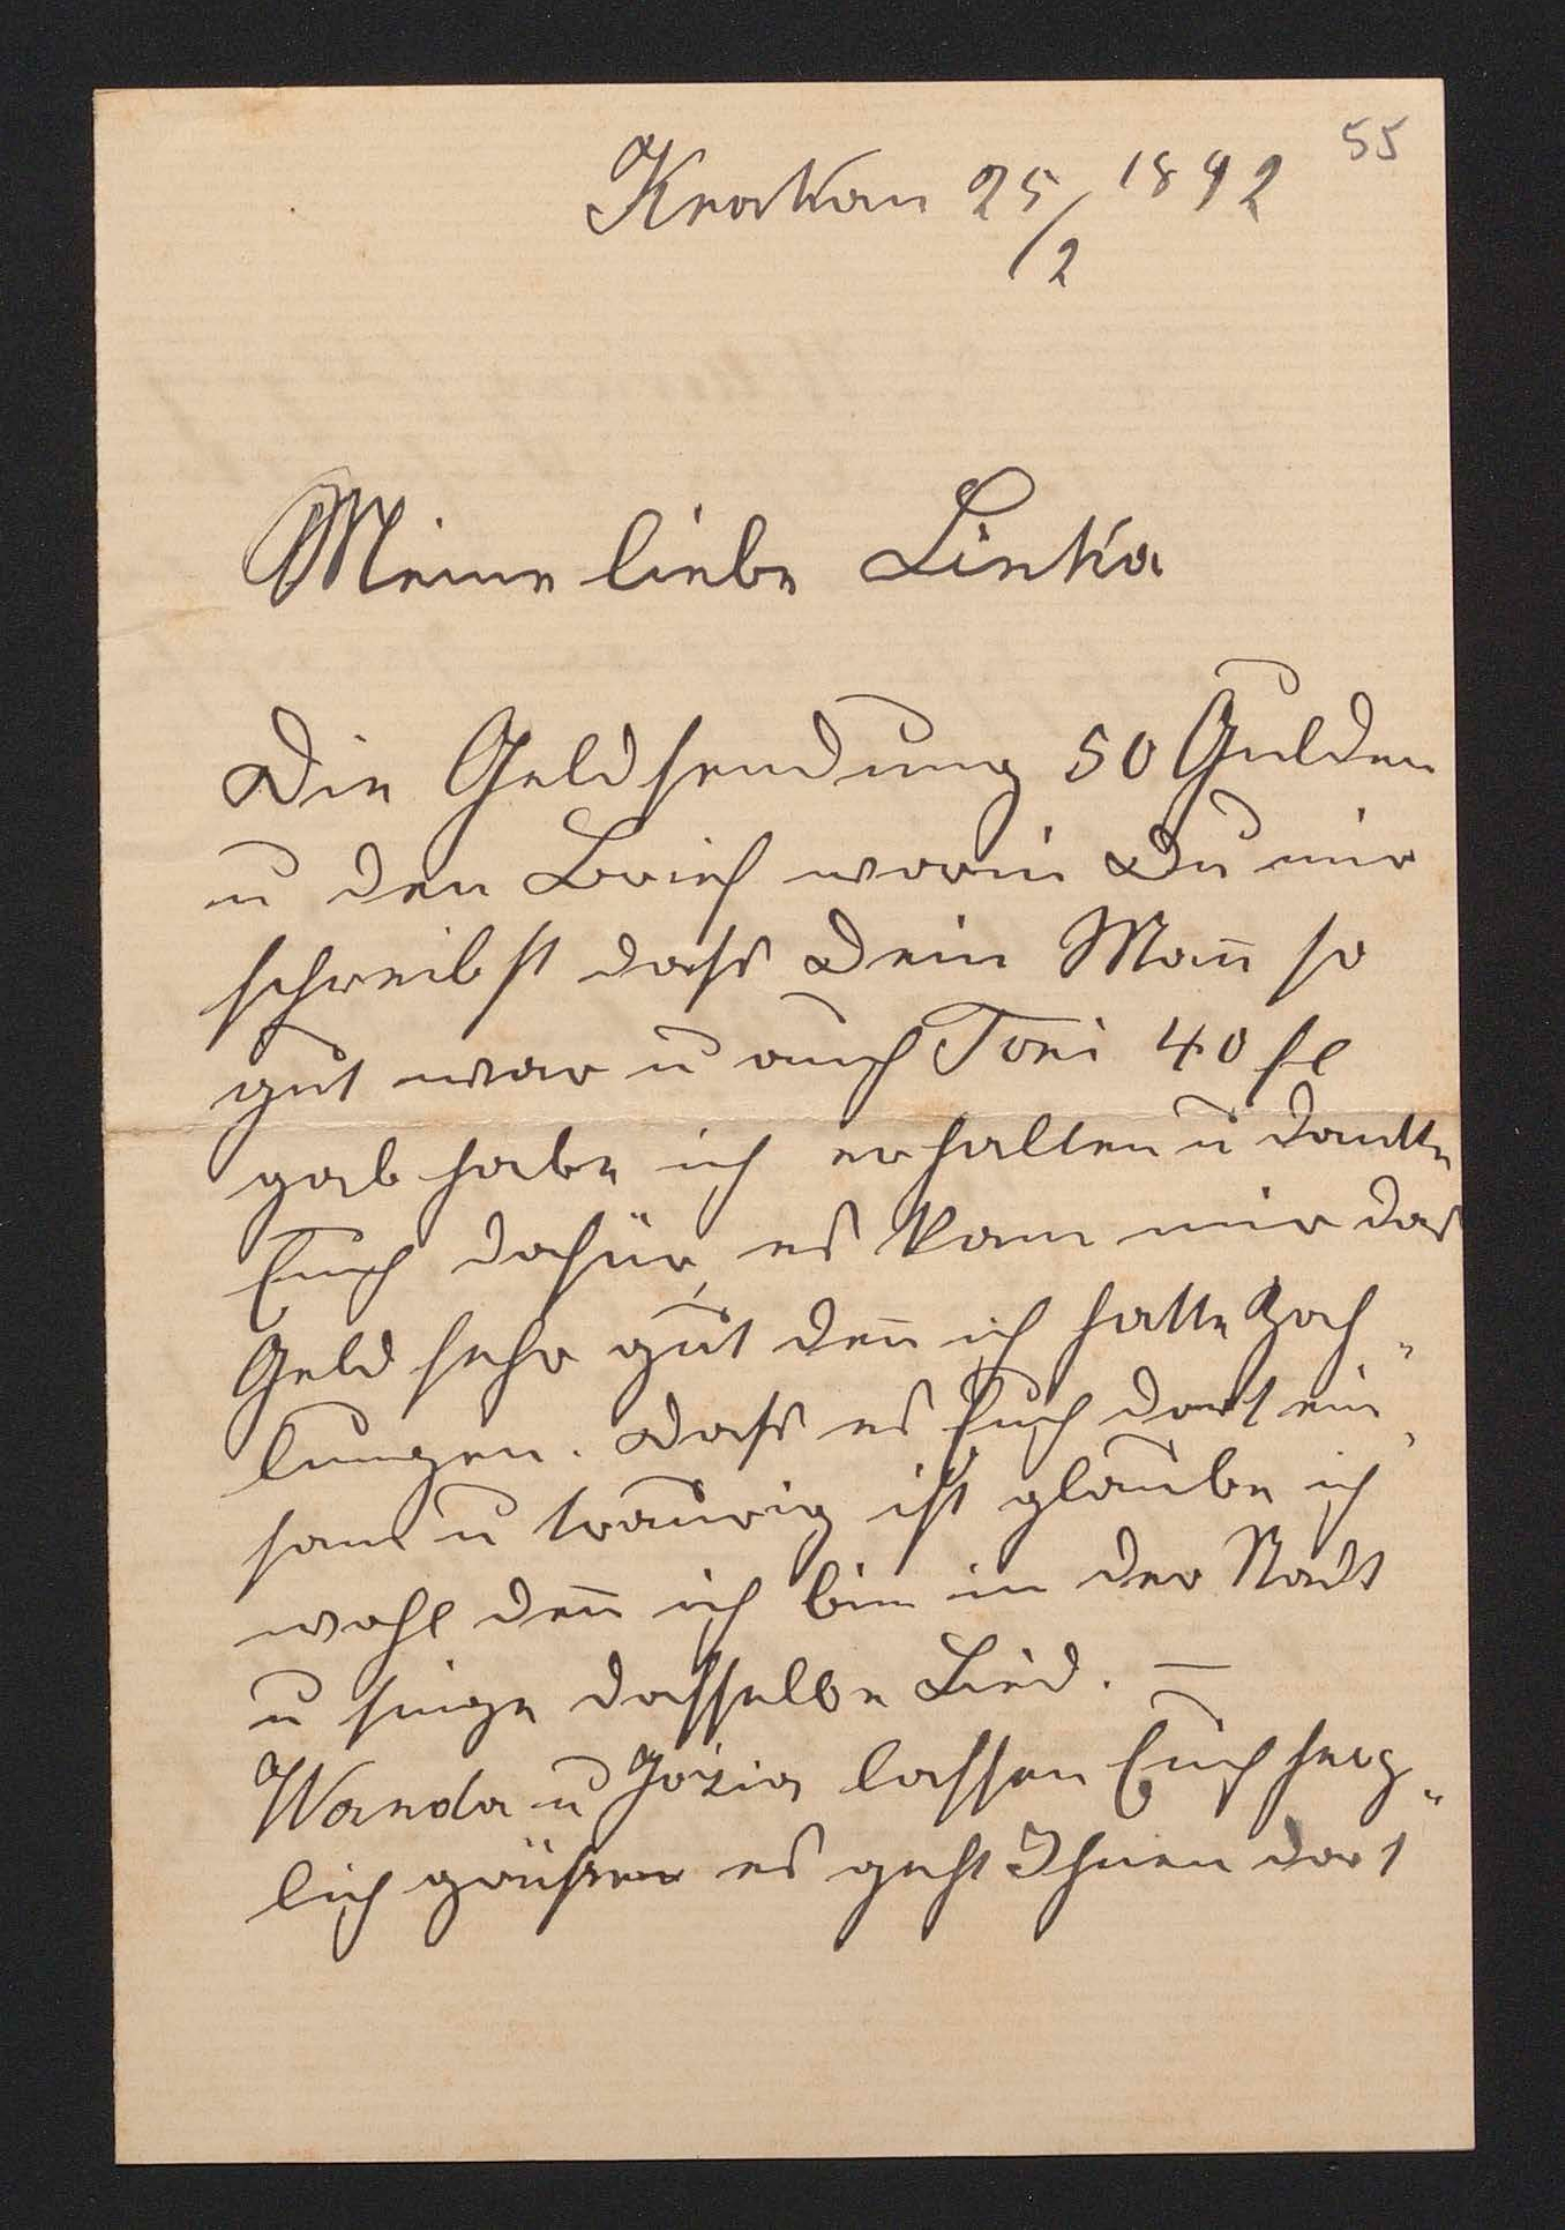 55
Krakau 25/2 1892
Meine liebe Linka
Die Geldsendung 50 Gulden
u den Brief worin Du mir
schreibst dass Dein Man̅ so
gut war u auch Toni 40 fl
gab habe ich erhalten u dankte
Euch dafür, es kam mir das
Geld sehr gut den̅ ich hatte Zah„
lungen. Dass es Euch dort ein„
sam u traurig ist glaube ich
wohl den̅ ich bin in der Stadt
u singe dasselbe Lied. —
Wanda u Józia lassen Euch herz„
lich grüssen es geht Ihnen dort